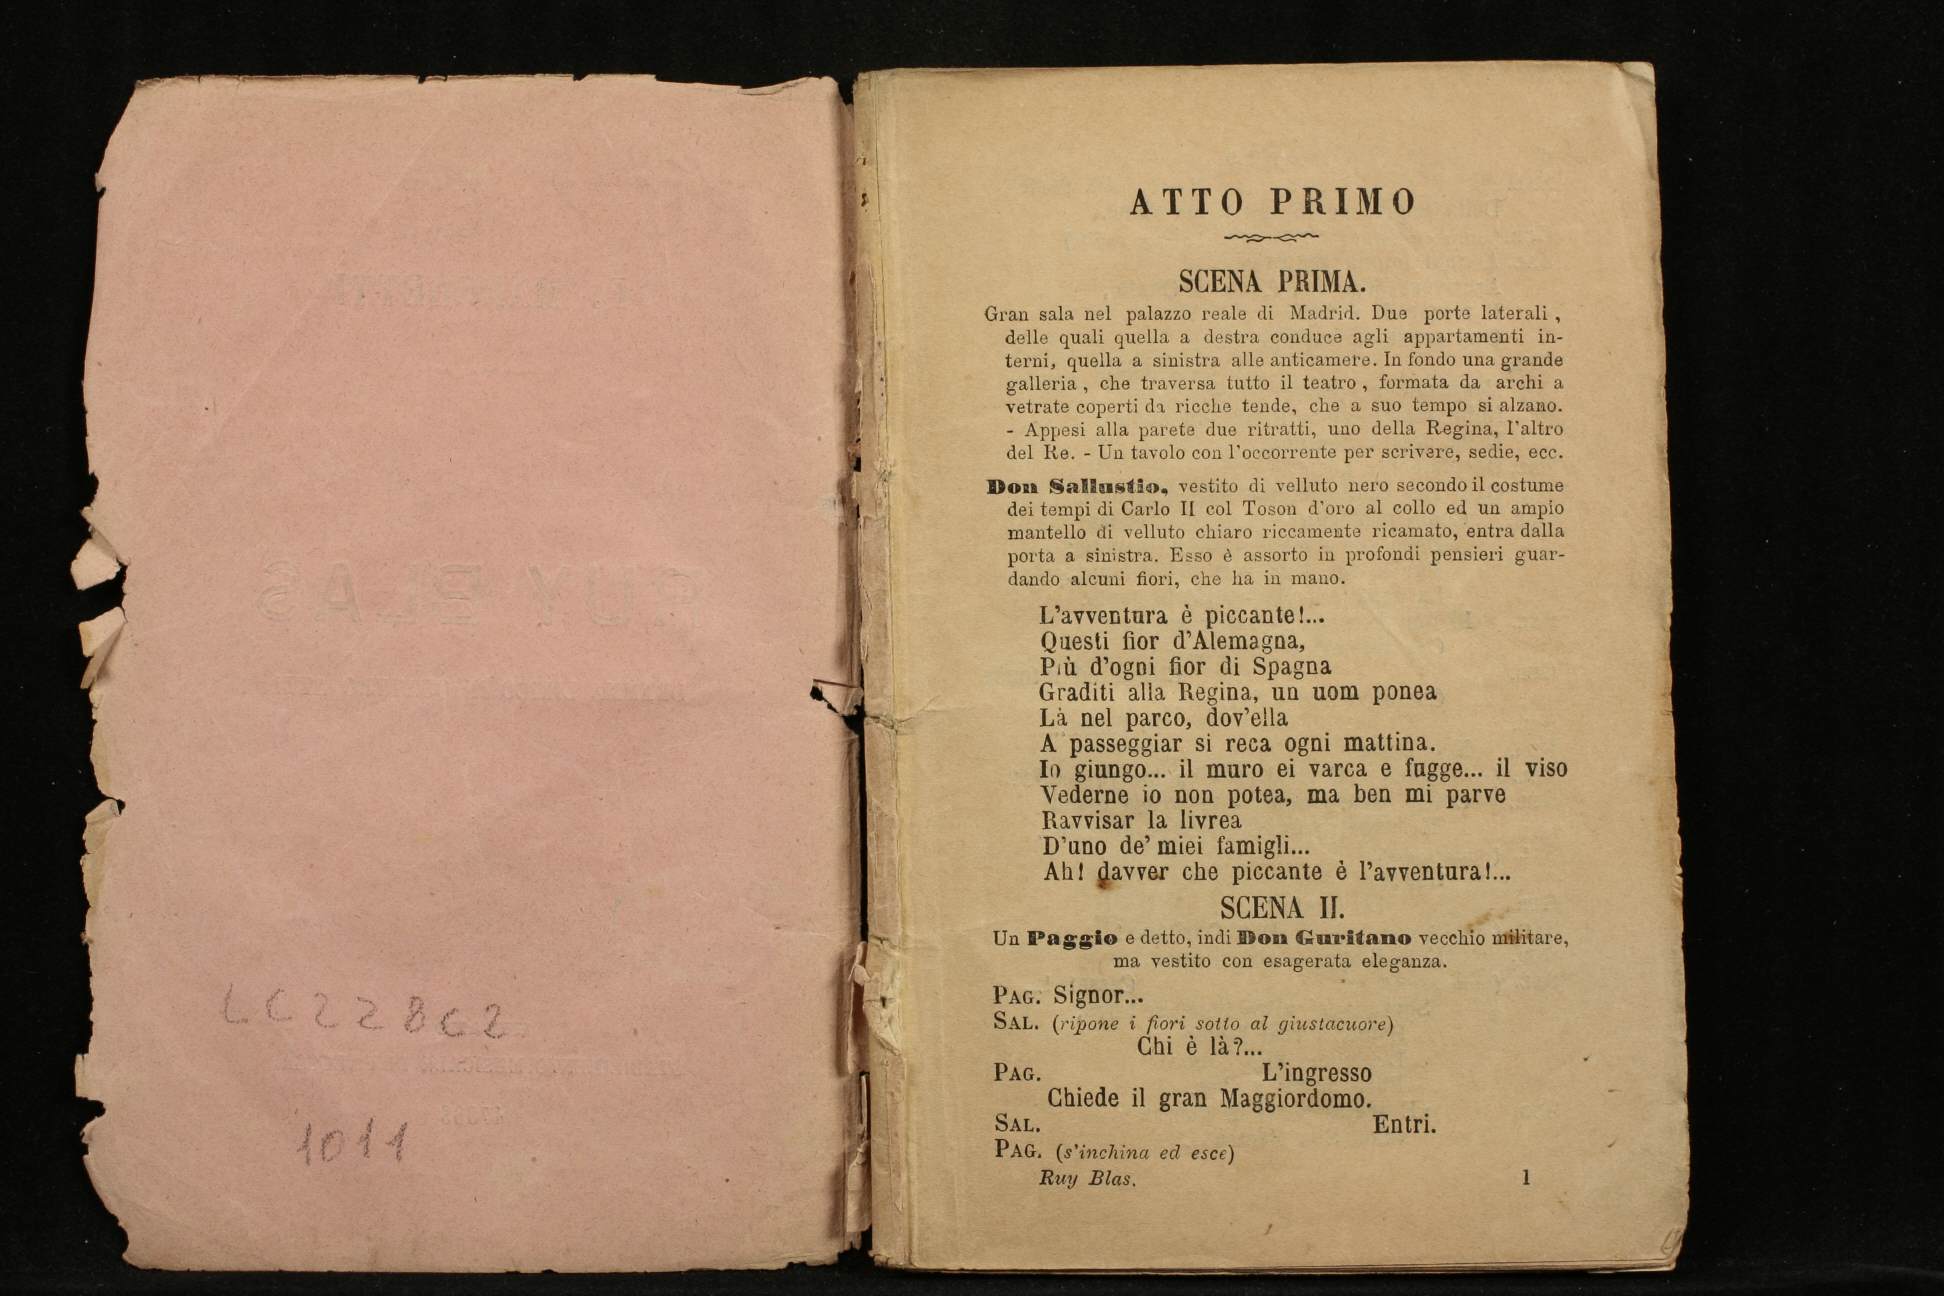 LC228C2
1011
ATTO PRIMO
SCENA PRIMA.
Gran sala nel palazzo reale di Madrid. Due porte laterali,
delle quali quella a destra conduce agli appartamenti in-
terni, quella a sinistra alle anticamere. In fondo una grande
galleria, che traversa tutto il teatro, formata da archi a
vetrate coperti da ricche tende, che a suo tempo si alzano.
- Appesi alla parete due ritratti, uno della Regina, l'altro
del Re. - Un tavolo con l'occorrente per scrivere, sedie, ecc.
Don Sallustio, vestito di velluto nero secondo il costume
dei tempi di Carlo II col Toson d'oro al collo ed un ampio
mantello di velluto chiaro riccamente ricamato, entra dalla
porta a sinistra. Esso è assorto in profondi pensieri guar-
dando alcuni fiori, che ha in mano.
L'avventura è piccante!...
Questi fior d'Alemagna,
Più d'ogni fior di Spagna
Graditi alla Regina, un uom ponea
Là nel parco, dov'ella
A passeggiar si reca ogni mattina.
Io giungo... il muro ei varca e fugge... il viso
Vederne io non potea, ma ben mi parve
Ravvisar la livrea
D'uno de' miei famigli...
Ah! davver che piccante è l'avventura!...
SCENA II.
Un Paggio e detto, indi Don Guritano vecchio militare,
ma vestito con esagerata eleganza.
PAG. Signor...
SAL. (ripone i fiori sotto al giustacuore)
Chi è là?...
PAG. L'ingresso
Chiede il gran Maggiordomo.
SAL. Entri.
PAG. (s'inchina ed esce)
Ruy Blas. 1